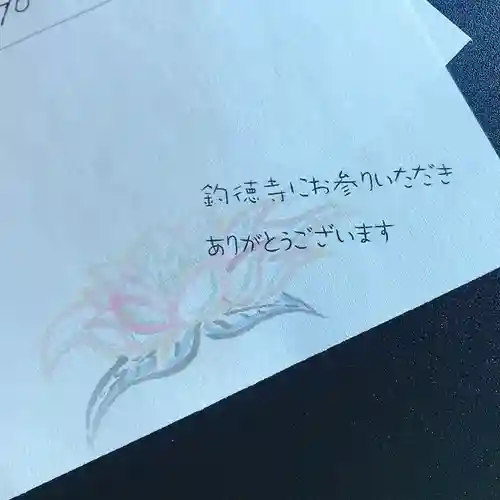 釣徳寺にお参りいただき
ありがとうございます